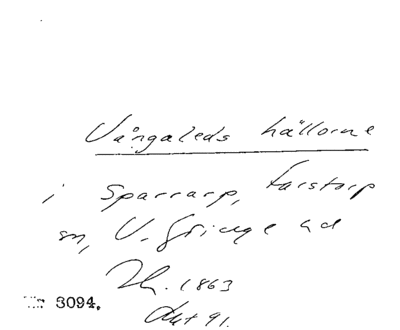 Vångaleds hällorne
i Sparrarp, Farstorp
sn, V. Göinge hd
Th. 1863
Aut 91.
Nr 3094.